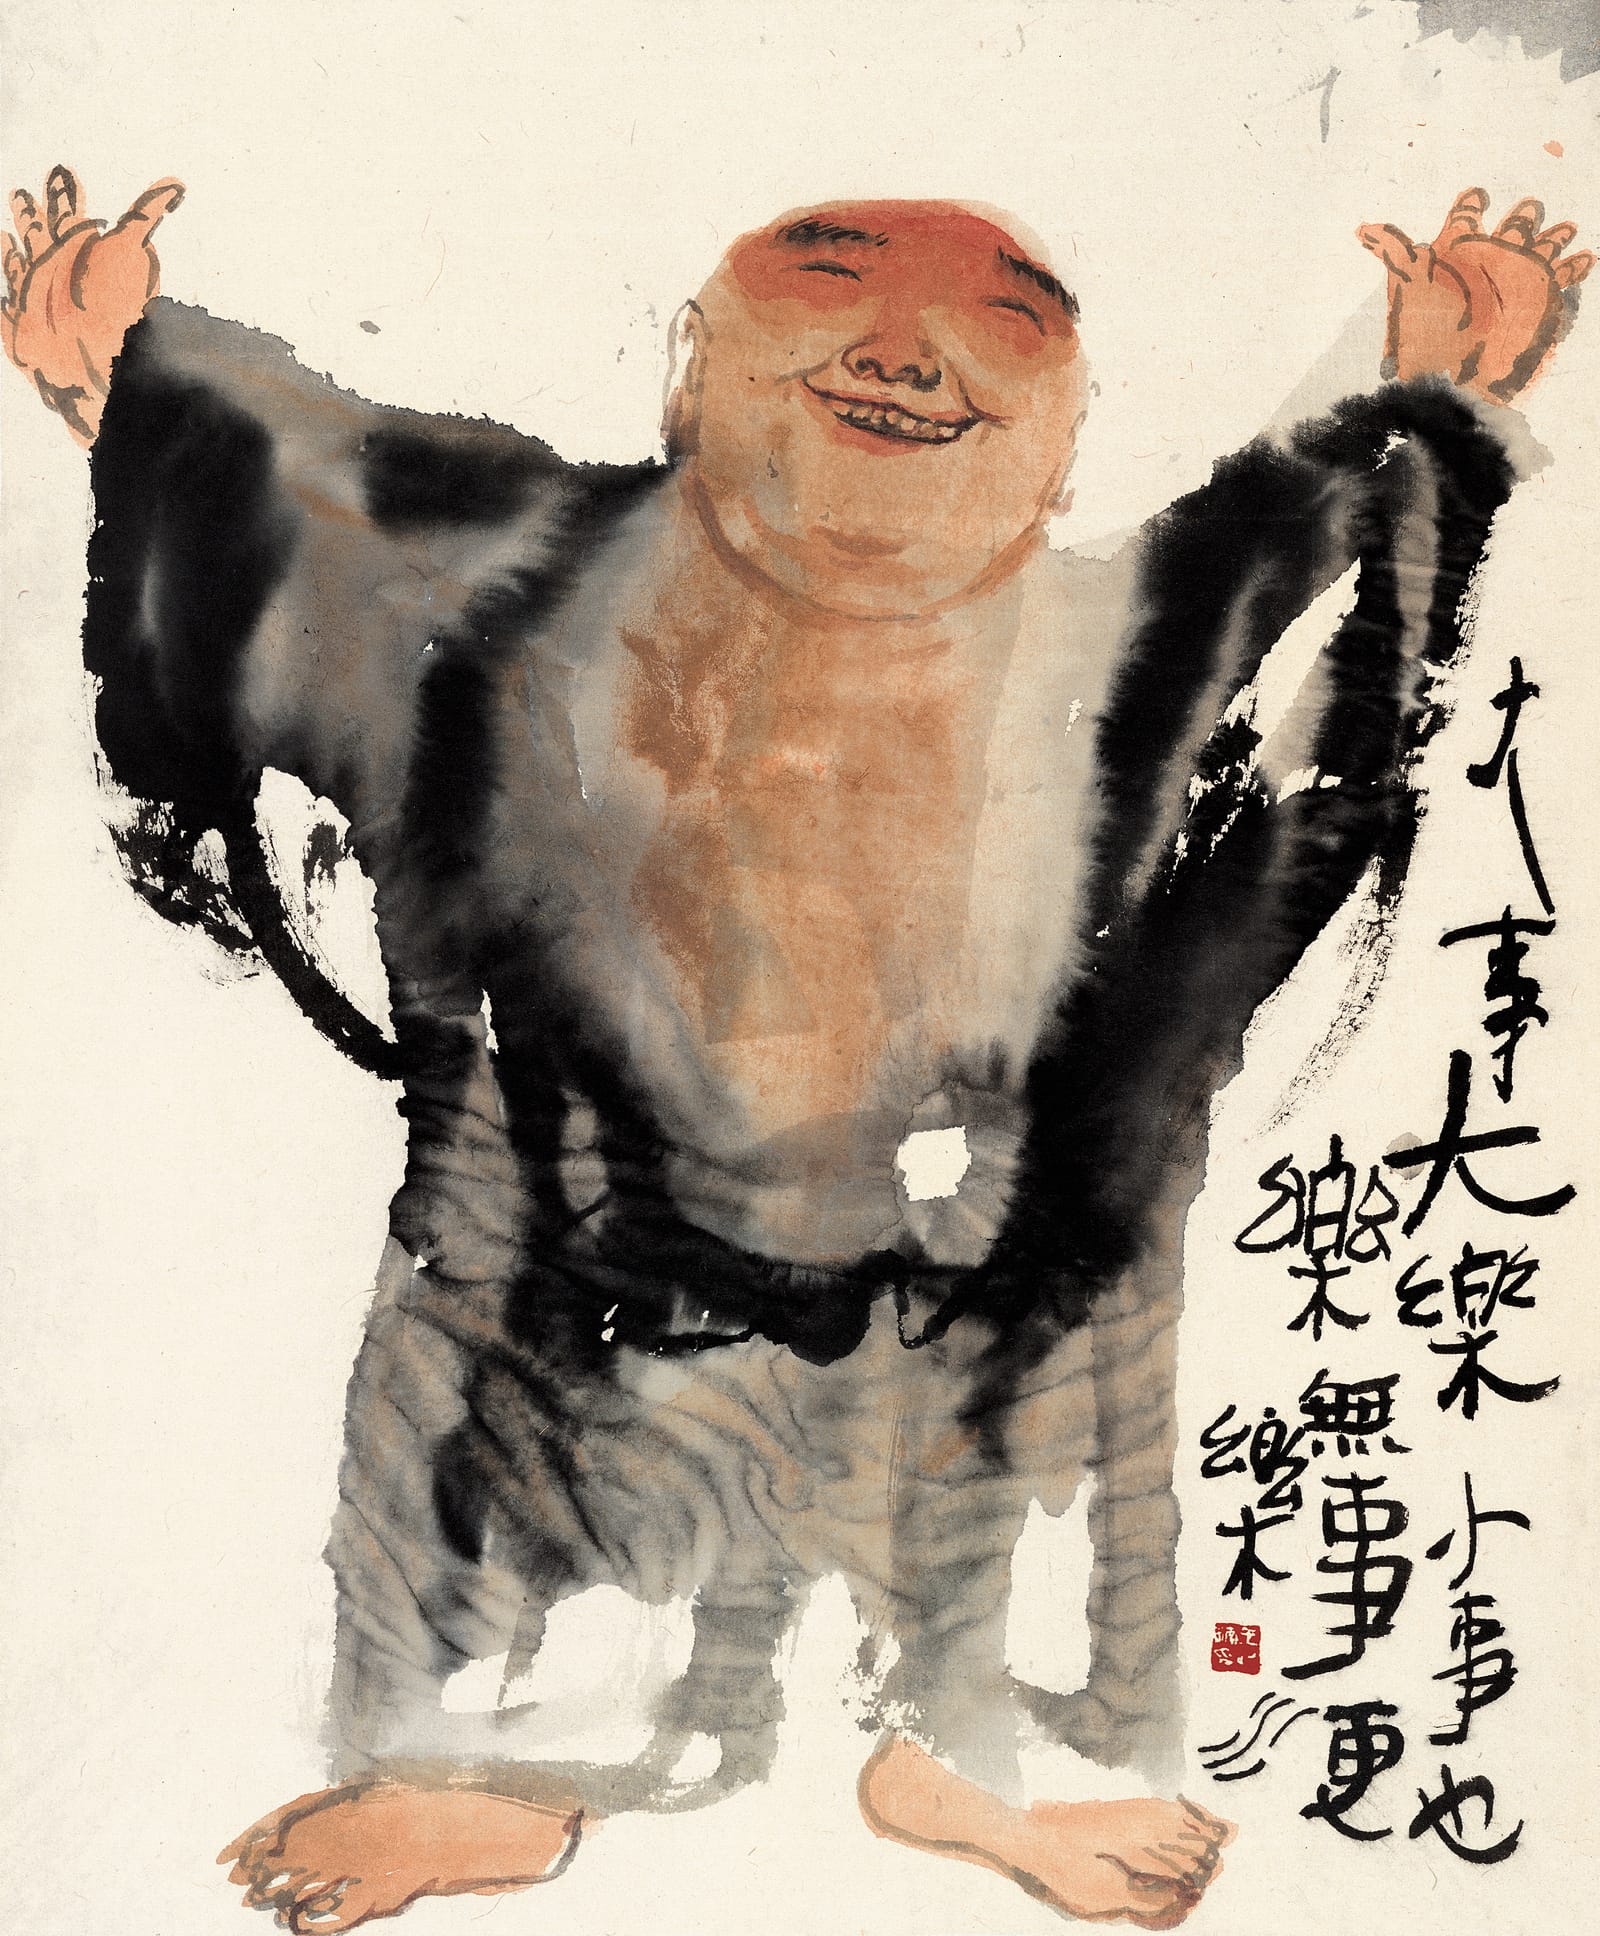 大事大樂小事也
樂無事更
樂